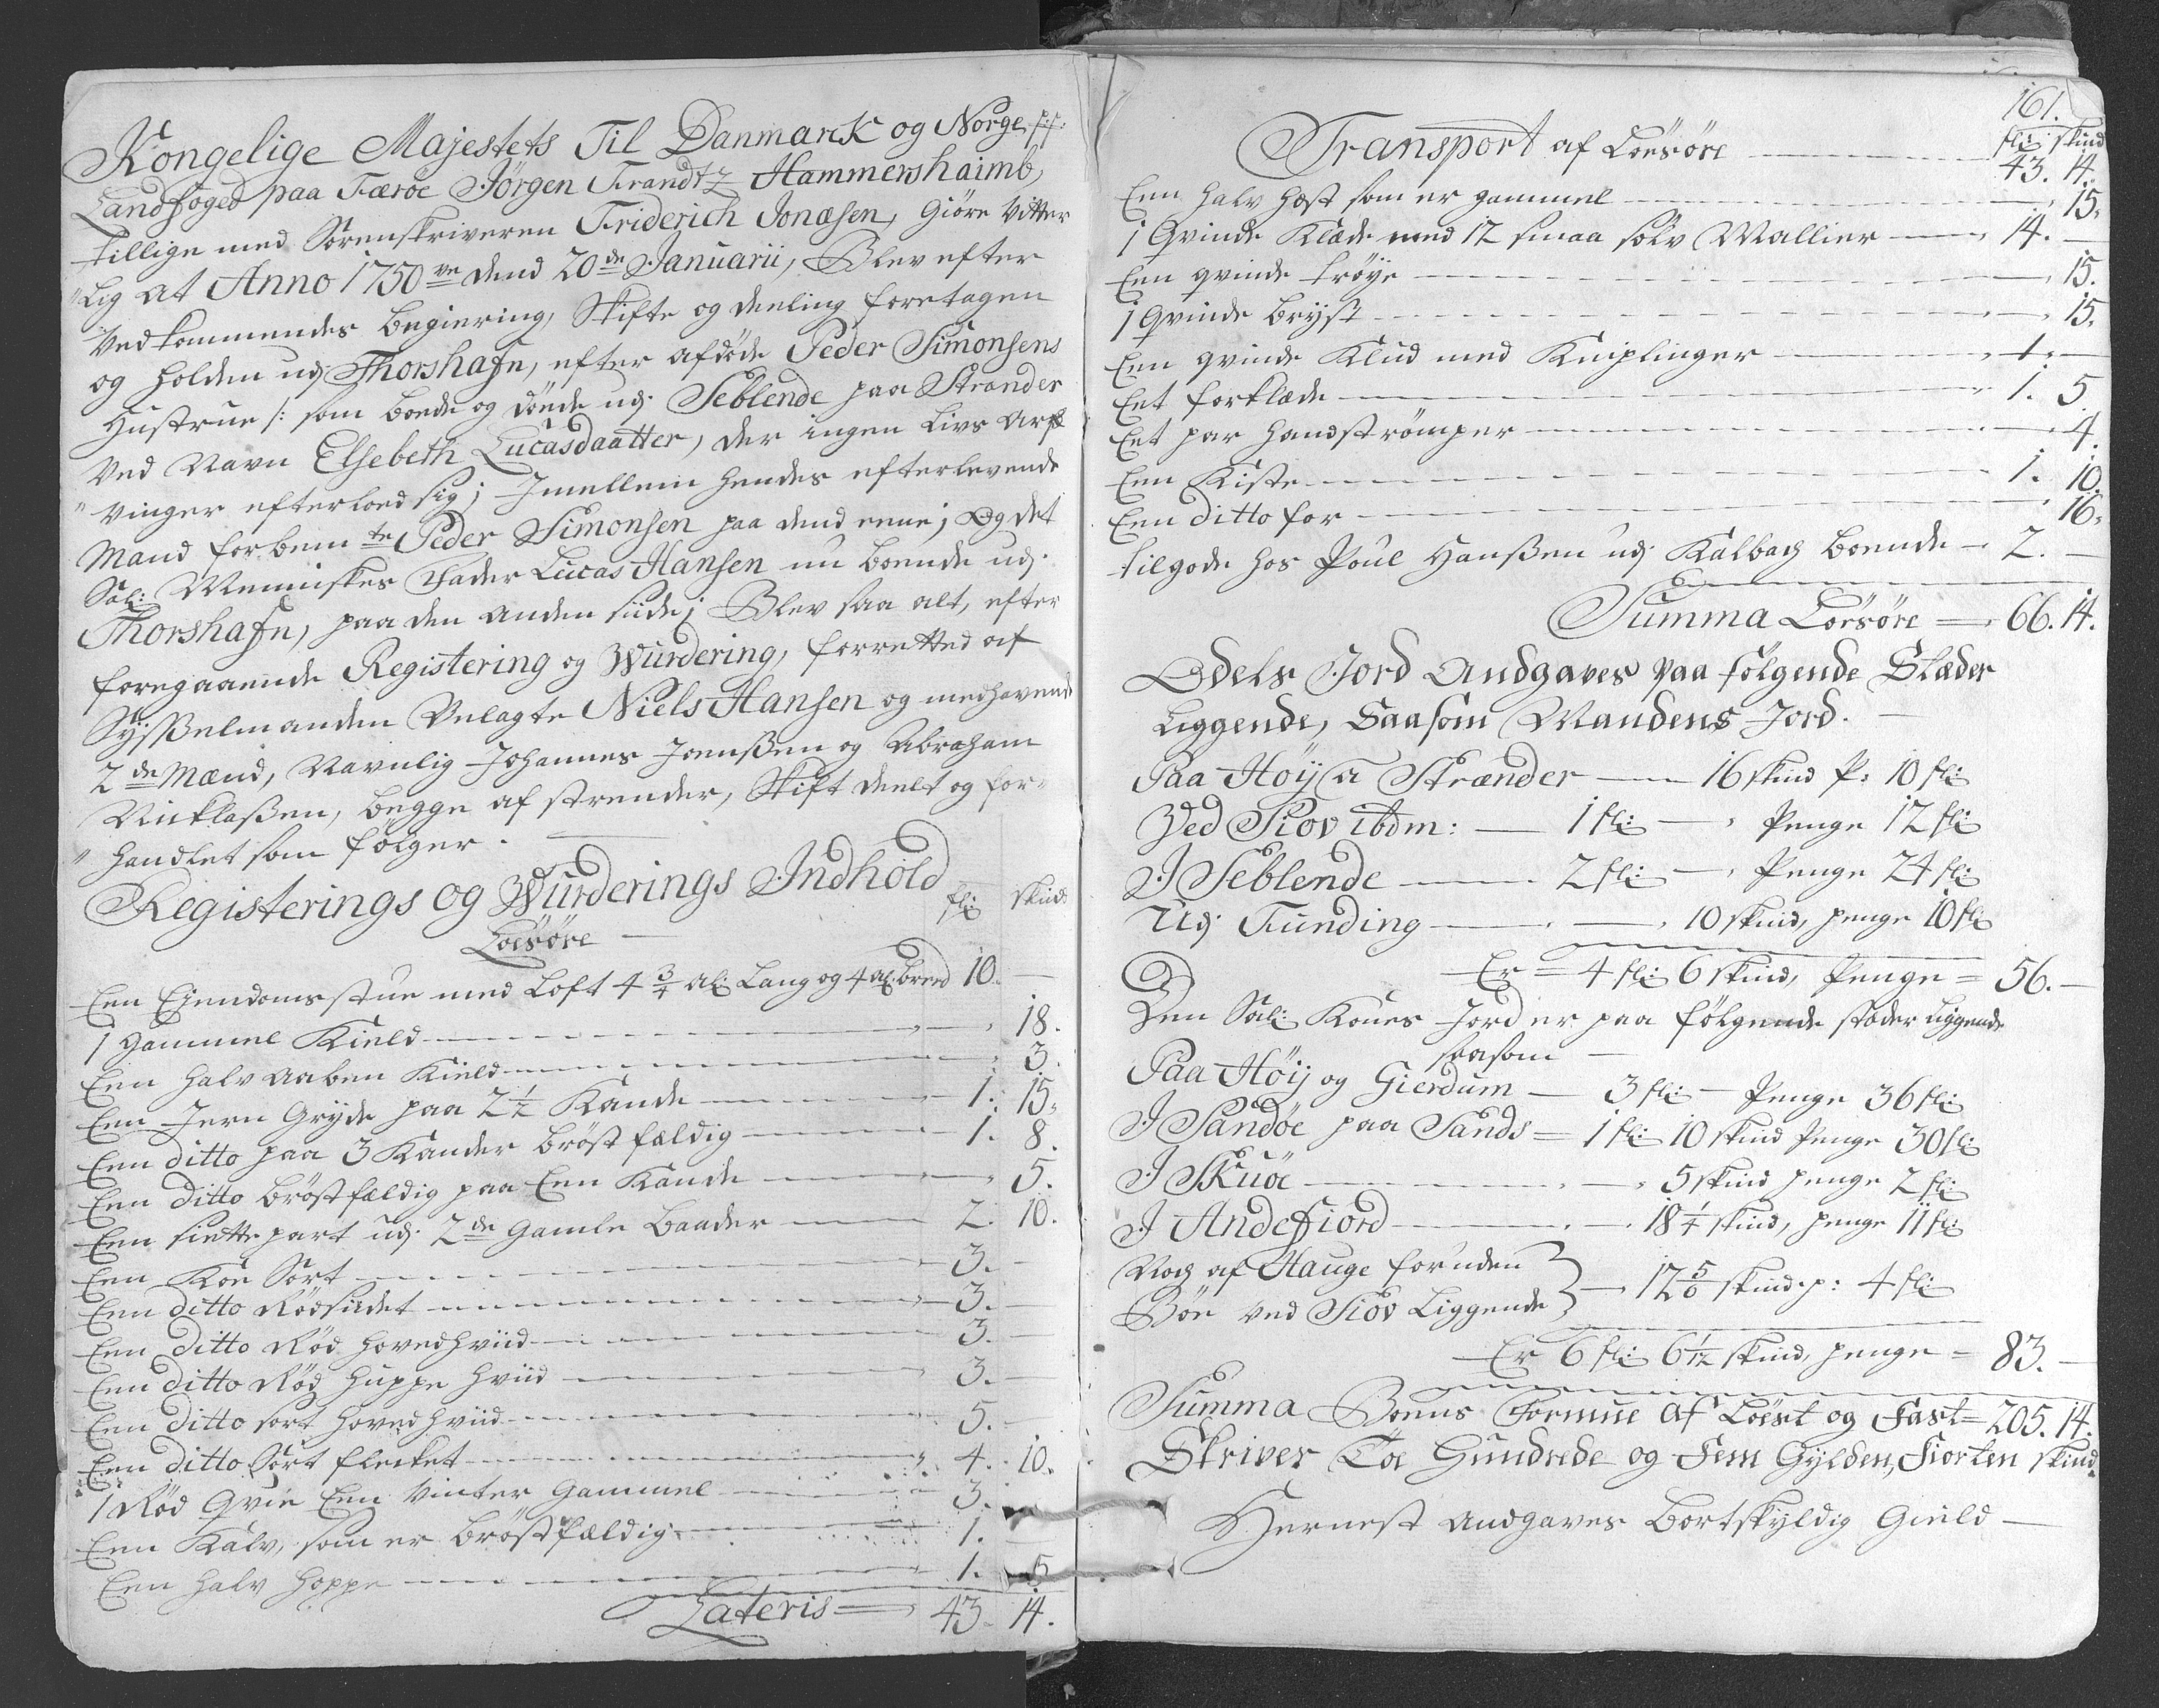 Kongelige Majestets Til Danmarck og Norge p:p:
Landfoged paa Færöe Jörgen Frandtz Hammershaimb,
tillige med Sorenskriveren Friderich Jonæsen, Giöre Vitter
"lig at Anno 1750ve dend 20de Januarii, Blev efter
Vedkommendes begiering, Skifte og deeling foretagen
og holden udj Thorshafn, efter afdöde Peder Simonsens
Hustrue /: som boede og döede udj Seblende paa Strander
Ved Navn Elsebeth Lucasdaatter, der ingen Livs Arf
" vinger efterloed sig; Jmellem hendes efterlevende
Mand forbemte Peder Simonsen paa dend eene; Og det
Sal: Menniskes Fader Lucas Hansen nu boende udj
Thorshafn, paa den anden siide; Blev saa alt, efter
foregaaende Registering og Wurdering, forretted af
Sysselmanden Velagte Niels Hansen og medhavende
2de Mænd, Navnlig Johannes Joenssen og Abraham
Nicklassen, begge af strender, Skift deelt og for=
" handlet som fölger.
Registerings og Wurderings Indhold
Löesöre
fl: skind
Een Ejendoms stue med Loft 4 3/4 al: Lang og 4 al: breed 10. —
1 Gammel Kield — 18.
Een halv aaben Kield — 3.
Een Jern Gryde paa 2 1/2 Kande — 1. 15.
Een ditto paa 3 Kander bröstfældig — 1. 8.
Een ditto bröstfældig paa Een Kande — 5.
Een siette part udj 2de Gamle Baader — 2. 10.
Een Koe Sort — 3. —
Een ditto Rödsiedet — 3. —
Een ditto Röd hovedhviid — 3. —
Een ditto Röd huppe hviid — 3. —
Een ditto sort hovedhviid — 5. —
Een ditto Sort flecket — 4. 10.
1 Röd Qvie Een Vinter Gammel — 3.
Een Kalv, som er bröstfældig — 1. —
Een halv hoppe — 1. 15
Lateris = 43. 14.
161.
fl: skind
Transport af Löesöre — 43. 14.
Een halv hæst som er gammel — 15.
1 Qvinde Klæde med 12 smaa sölv Mallier — 14. —
Een qvinde tröye — 15.
1 Qvinde bryst — 15.
Een qvinde Klud med Kniplinger — 1. —
Eet forklæde — 1. 5
Eet par handströmper — 4.
Een Kiste — 1. 10.
Een ditto for — 16.
tilgode hos Poul Hanssen udj Kalbach boende — 2. —
Summa Löesöre = 66. 14.
Odels Jord Andgaves paa fölgende Stæder
Liggende, Saasom Mandens Jord. —
Paa Höij a Strænder — 16 skind P: 10 fl:
Ved Siov ibdm: — 1 fl: — Penge 12 fl:
J Seblende — 2 fl: — Penge 24 fl:
Udj Funding — 10 skind, penge 10 fl:
Er = 4 fl: 6 skind, Penge = 56. —
Den Sal: Kones Jord er paa fölgende stæder Liggende
saasom —
Paa Höij og Gierdum — 3 fl: — Penge 36 fl:
J Sandöe paa Sands = 1 fl: 10 skind Penge 30 fl:
J Skuöe — 5 skind penge 2 fl:
J Andefiord — 18 1/4 skind, penge 11 fl:
Noch af Hauge foruden
Böe ved Siov Liggende } — 12 5/6 skind p: 4 fl:
Er 6 fl: 6 1/12 skind, penge = 83. —
Summa Boens Formue af Löest og Fast = 205. 14.
Skriver Toe Hundrede og Fem Gylden, Fiorten skind.
Hernest Andgaves bortskyldig Gield —